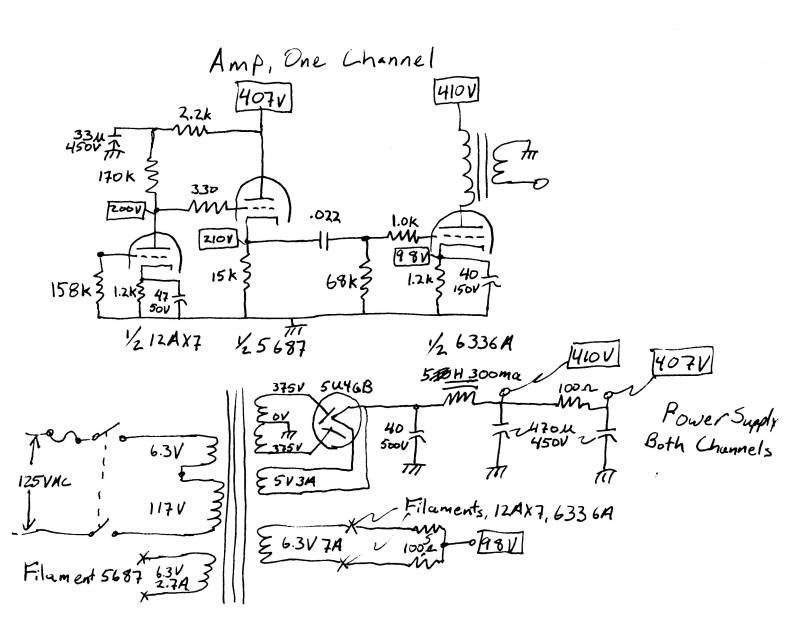 Amp, One Channel
407V
410V
2.2k
33µ
450V
170k
330
200V
.022
1.0k
210V
98V
15k
68k
1.2k
40
150V
158k
1.2k
47
50V
1/2 12AX7
1/2 5687
1/2 6336A
5 H 300ma
410V
407V
375V
5U4GB
0V
375V
100Ω
40
500V
470µ
450V
Power Supply
Both Channels
6.3V
125VAC
117V
5V3A
Filaments, 12AX7, 6336A
6.3V 7A
100Ω
98V
Filament 5687
6.3V
2.7A